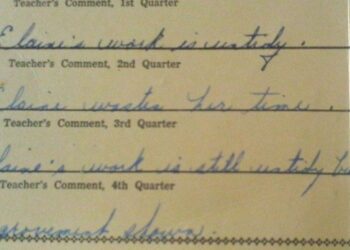 Teacher's Comment, 1st Quarter
Elaine's work is untidy.
Teacher's Comment, 2nd Quarter
Elaine wastes her time.
Teacher's Comment, 3rd Quarter
laine's work is still untidy bu
Teacher's Comment, 4th Quarter
provement shown.